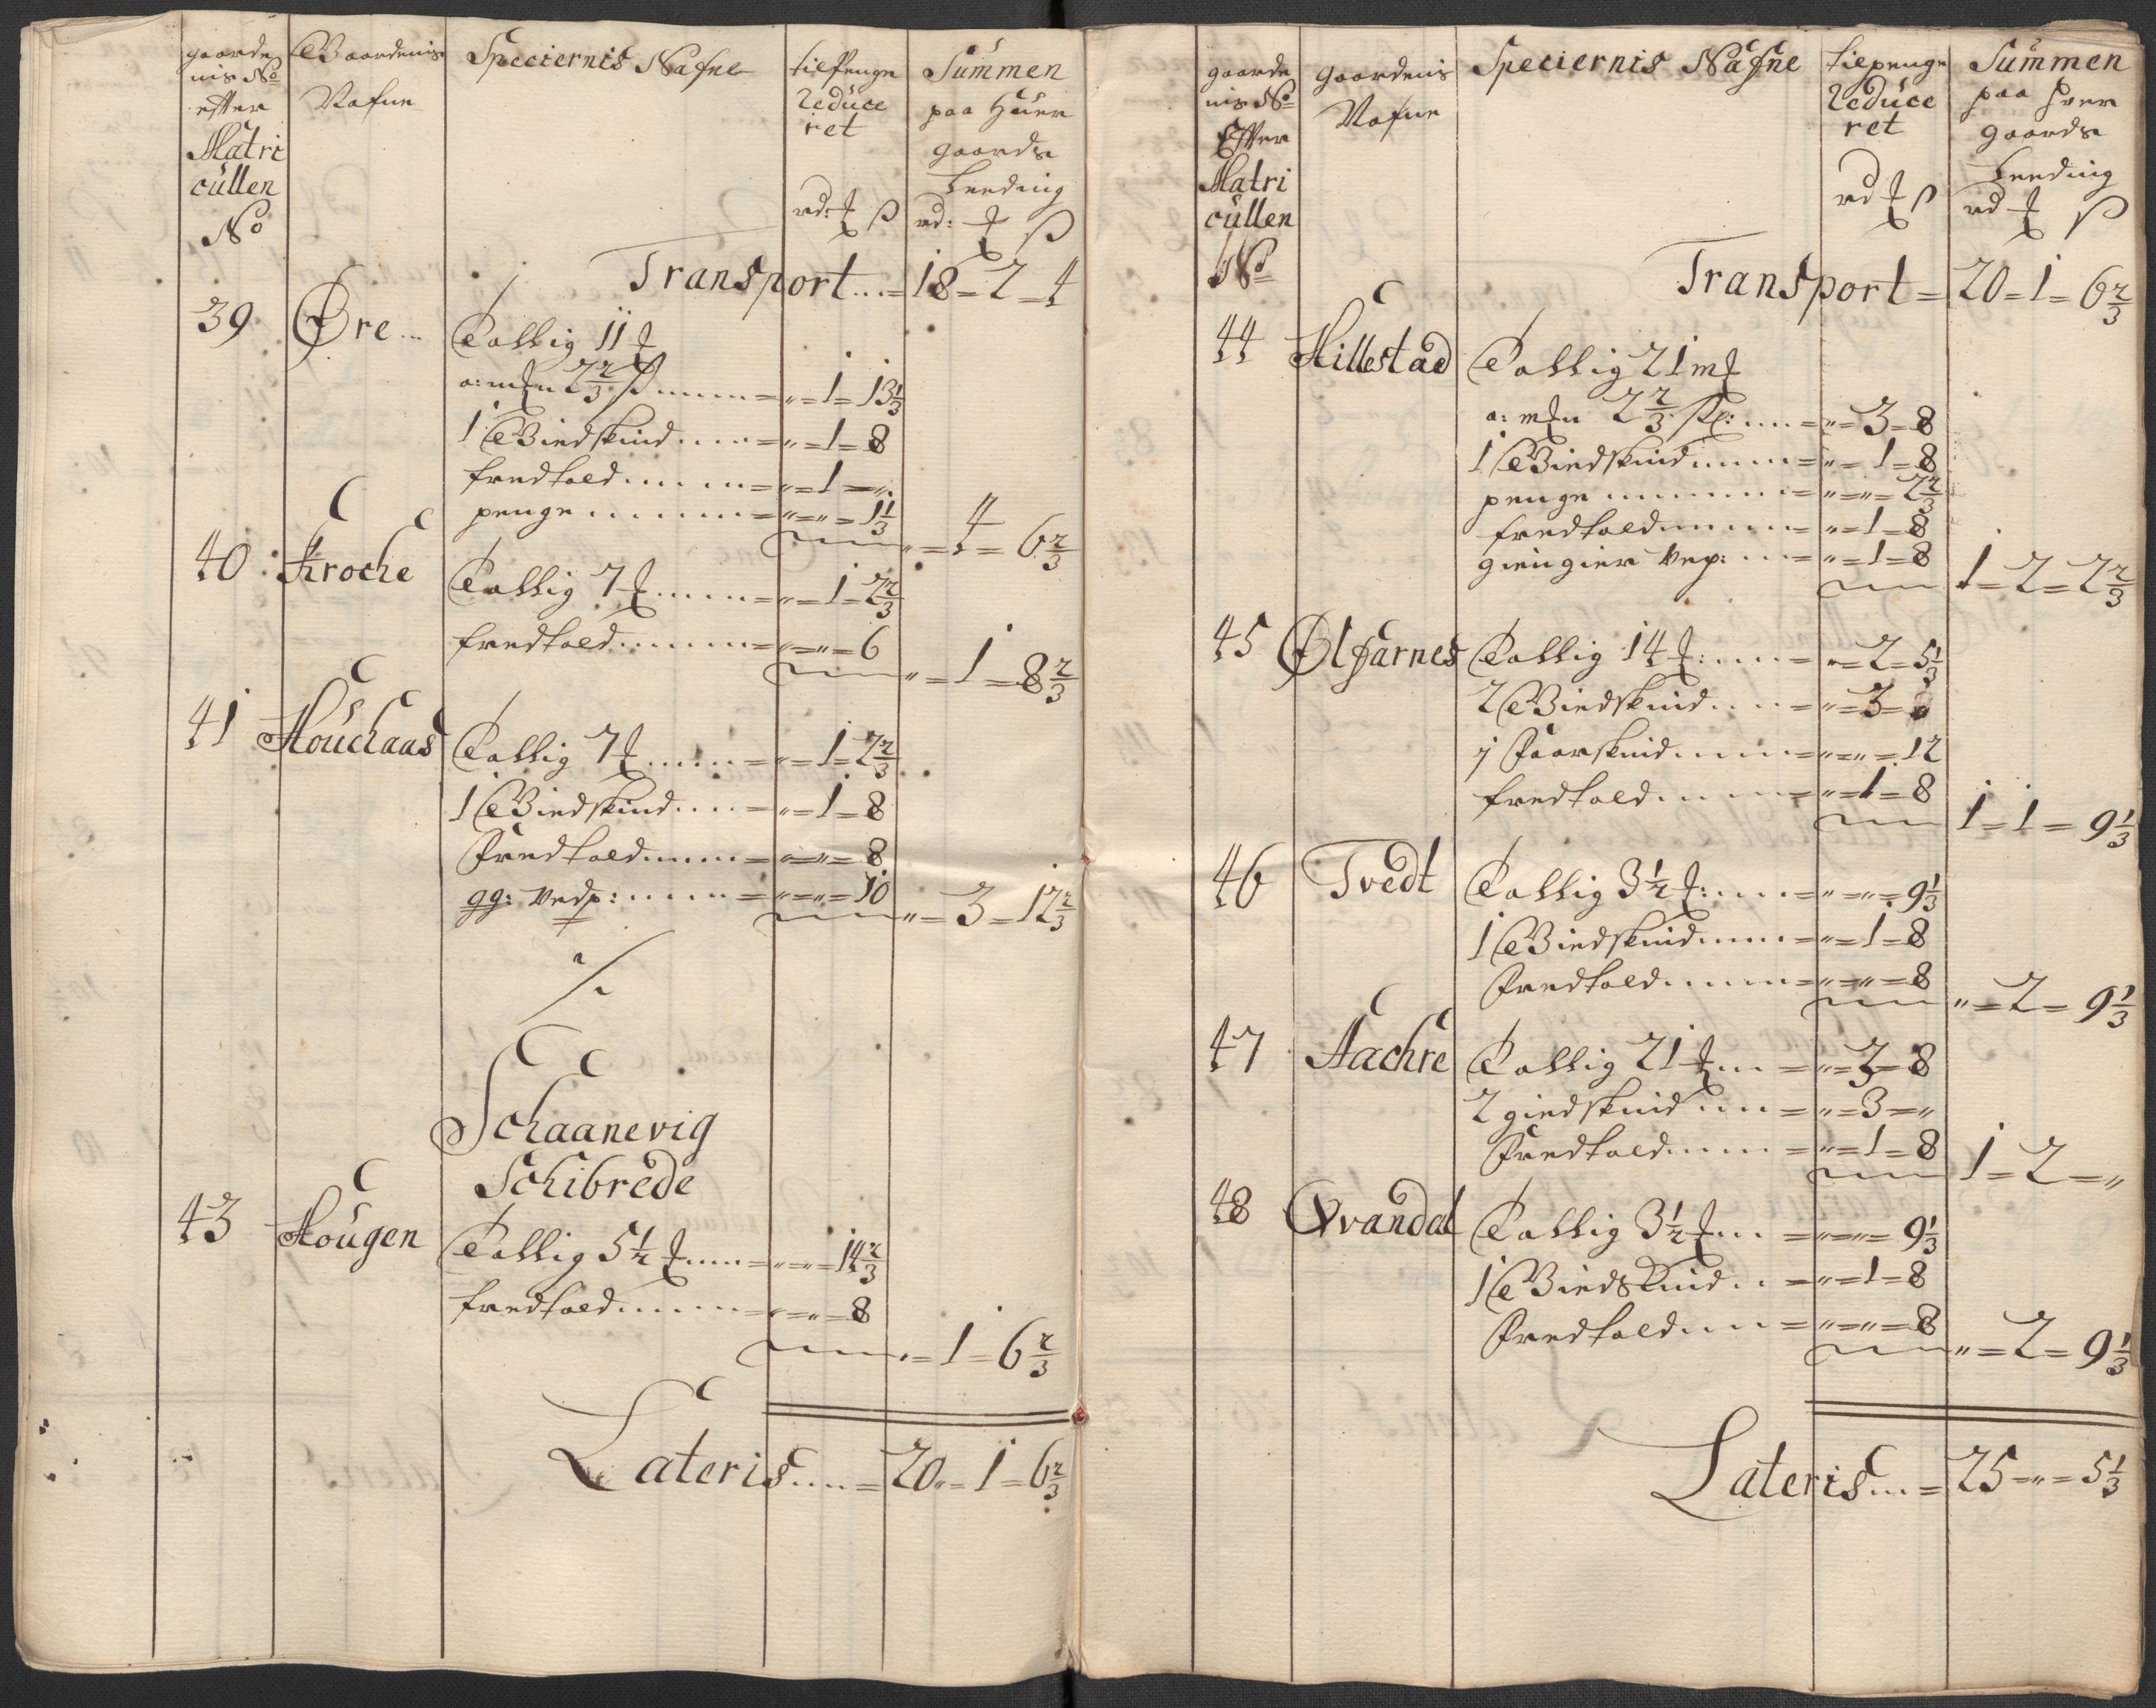 gaarde
nis No
effter
Matri
cullen
No
Gaardenis
Nafne
Speciernis Nafne
til penge
reduce
ret
rd: ₰ ß
Summen
paa huer
gaards
Leeding
rd: ₰ ß
Transport....= 18 = 2 = 4
39 Øre... Tallig 11 ₰
a: m₰n 2 2/3 ß ...... = " = 1 = 13 1/3
1 Giedskind.... = " = 1 = 8
fredtold...... = " = 1 = "
penge ....... = " = " = 1 1/3
" = 4 = 6 2/3
40 Kroche Tallig 7 ₰ ...... = " = 1 = 2 2/3
fredtold....... = " = " = 6
" = 1 = 8 2/3
41 Houchaas Tallig 7 ₰ ...... = " = 1 = 2 2/3
1 Giedskind.... = " = 1 = 8
Fredtold..... = " = " = 8
gg: vedp: ..... = " = " = 10
" = 3 = 12 2/3
Schaanevig
Schibrede
43 Hougen Tallig 5 1/2 ₰ .... = " = " = 14 2/3
fredtold...... = " = " = 8
" = 1 = 6 2/3
Lateris.... = 20 = 1 = 6 2/3
gaarde
nis No
Effter
Matri
cullen
No
gaardenis
Nafne
Speciernis Nafne
til penge
reduce
ret
rd ₰ ß
Summen
paa hver
gaards
Leeding
rd ₰ ß
Transport = 20 = 1 = 6 2/3
44 Hillestad Tallig 21 m₰
a: m₰n 2 2/3 ß: .... = " = 3 = 8
1 Giedskind..... = " = 1 = 8
penge ....... = " = " = 2 2/3
fredtold...... = " = 1 = 8
giengier vep: ... = " = 1 = 8
1 = 2 = 2 2/3
45 Ølfarnes Tallig 14 ₰: .... = " = 2 = 5 1/3
2 Giedskind.... = " = 3 =
1 Faarskind..... = " = " = 12
fredtold...... = " = 1 = 8
1 = 1 = 9 1/3
46 Tvedt Tallig 3 1/2 ₰: .... = " = " = 9 1/3
1 Giedskind..... = " = 1 = 8
Fredtold...... = " = " = 8
" = 2 = 9 1/3
47 Aachre Tallig 21 ₰ ... = " = 3 = 8
2 giedskind .... = " = 3 = "
Fredtold...... = " = 1 = 8
1 = 2 = "
48 Qvandal Tallig 3 1/2 ₰ ... = " = " = 9 1/3
1 Giedskind.. = " = 1 = 8
Fredtold.... = " = " = 8
" = 2 = 9 1/3
Lateris... = 25 = " = 5 1/3